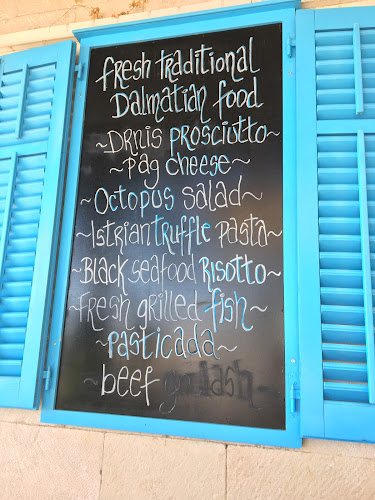 fresh traditional
Dalmatian food
~Drnis prosciutto~
~Pag cheese~
~Octopus salad~
~Istrian truffle pasta~
~Black seafood Risotto~
~fresh grilled fish~
~pasticada~
~beef goulash~